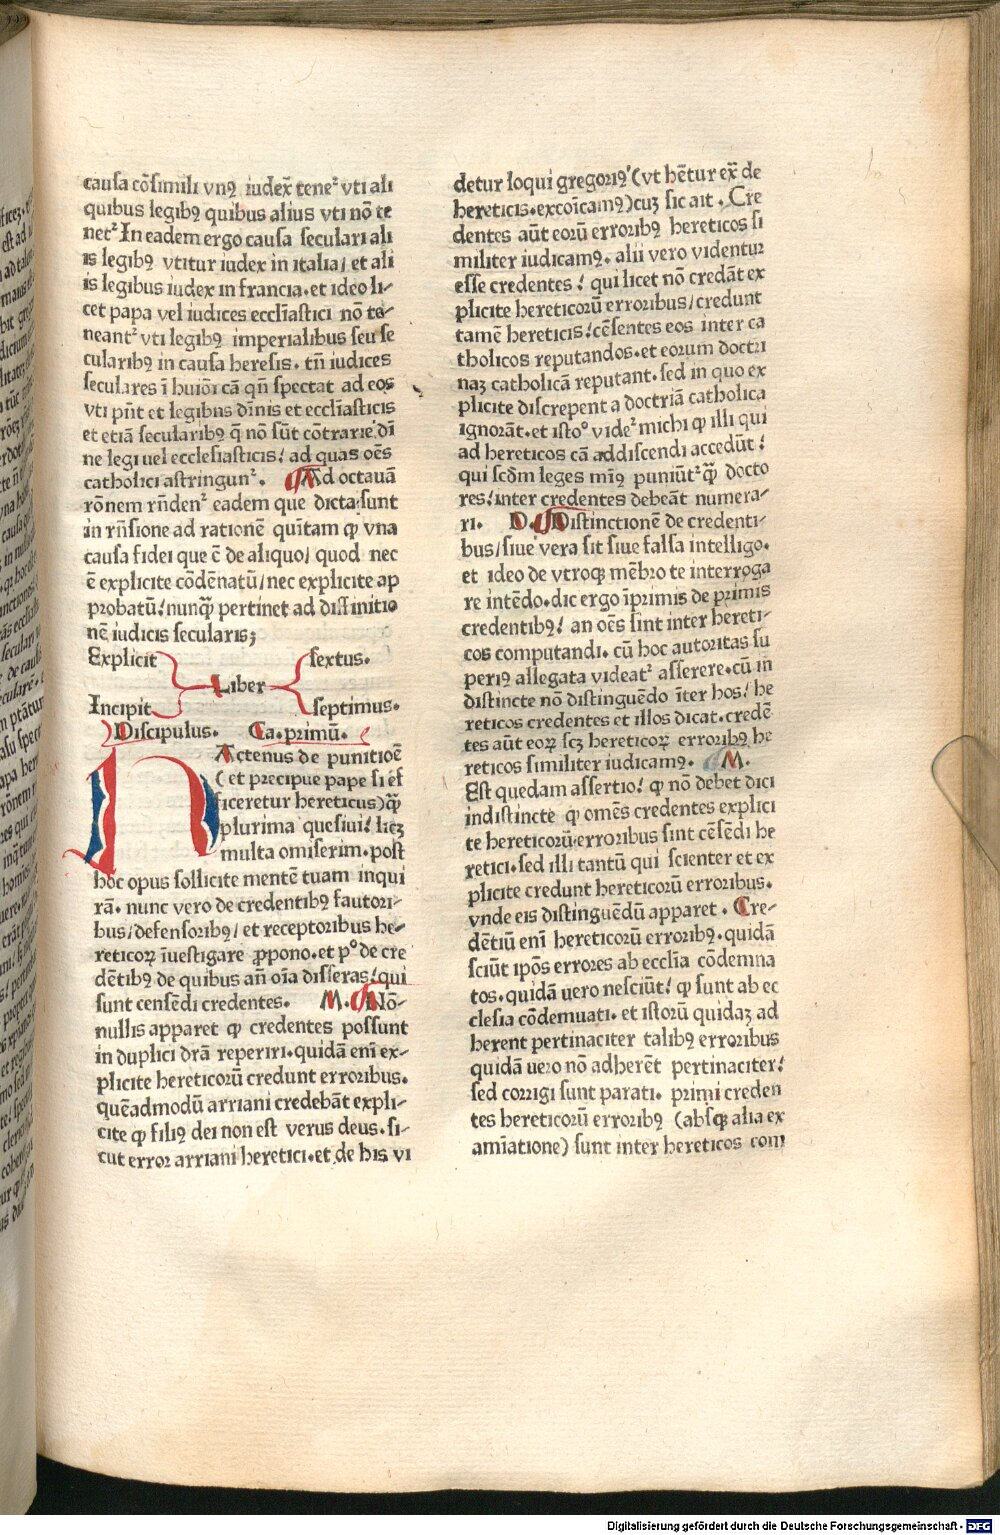 causa cōsimili vnꝰ iudex tene² vti ali
quibus legibꝰ quibus alius vti nō te
net² In eadem ergo causa seculari ali
is legibꝰ vtitur iudex in italia/ et ali
is legibus iudex in francia.et ideo li-
cet papa vel iudices eccl̄iastici nō te-
neant² vti legibꝰ imperialibus seu se
cularibꝰ in causa heresis. tn̄ iudices
seculares ī huiōi cā qn̄ spectat ad eos
vti pn̄t et legibus dīnis et eccl̄iasticis
et etiā secularibꝰ q̄ nō sūt cōtrarie dī
ne legi uel ecclesiastici! ad quas oēs
catholici astringun². Ad octauā
rōnem rn̄den² eadem que dicta sunt
in rn̄sione ad rationē quītam ꝙ vna
causa fidei que ē de aliquo/ quod nec
ē explicite cōdēnatū/ nec explicite ap
probatū! nunꝙ̄ pertinet ad distinitio
nē iudicis secularisꝫ
Explicit sextus.
Liber
Incipit septimus.
Discipulus. Ca.primū.
HActenus de punitioē
( et precipue pape si ef
ficeretur hereticus)ꝙ̄
plurima quesiui! licꝫ
multa omiserim.post
hoc opus sollicite mentē tuam inqui
rā. nunc vero de credentibꝰ fautori-
bus/defensoribꝰ/ et receptoribus he-
reticoꝝ īuestigare ꝓpono.et pº de cre
dētibꝰ de quibus an̄ oīa disseras!qui
sunt censēdi credentes. M. Nō-
nullis apparet ꝙ credentes possunt
in duplici drā reperiri.quidā enī ex-
plicite hereticorū credunt erroribus.
quēadmodū arriani credebāt expli-
cite ꝙ filiꝰ dei non est verus deus.si-
cut error arriani heretici.et de his vi
detur loqui gregoriꝰ (vt hētur ex̄ de
hereticis.excoīcamꝰ)cuꝫ sic ait. Cre
dentes aūt eorū erroribꝰ hereticos si
militer iudicamꝰ. alii vero videntur
esse credentes! qui licet nō credāt ex
plicite hereticorū erroribus/credunt
tamē hereticis!cēsentes eos inter ca
tholicos reputandos.et eorum doctri
naꝫ catholicā reputant.sed in quo ex
plicite discrepent a doctriā catholica
ignorāt.et istoº vide² michi ꝙ illi qui
ad hereticos cā addiscendi accedūt!
qui scd̄m leges mīꝰ puniūt² ꝙ̄ docto
res!inter credentes debeāt numera-
ri. D. Distinctionē de credenti-
bus/siue vera sit siue falsa intelligo.
et ideo de vtroqꝫ mēbro te interroga
re intēdo.dic ergo īprimis de primis
credentibꝰ! an oēs sint inter hereti-
cos computandi. cū hoc autoritas su
periꝰ allegata videat² asserere.cū in
distincte nō distinguēdo īter hos! he
reticos credentes et illos dicat.credē
tes aūt eoꝝ scꝫ hereticoꝝ erroribꝰ he
reticos similiter iudicamꝰ. M.
Est quedam assertio! ꝙ nō debet dici
indistincte ꝙ omēs credentes explici
te hereticorū erroribus sint cēsēdi he
retici.sed illi tantū qui scienter et ex
plicite credunt hereticorū erroribus.
vnde eis distinguēdū apparet. Cre-
dētiū enī hereticorū erroribꝰ.quidā
sciūt ipōs errores ab eccl̄ia cōdemna
tos.quidā uero nesciūt! ꝙ sunt ab ec
clesia cōdemuati. et istorū quidaꝫ ad
herent pertinaciter talibꝰ erroribus
quidā uero nō adherēt pertinaciter!
sed corrigi sunt parati. primi creden
tes hereticorū erroribꝰ (absqꝫ alia ex
amīatione) sunt inter hereticos com
Digitalisierung gefördert durch die Deutsche Forschungsgemeinschaft - DFG